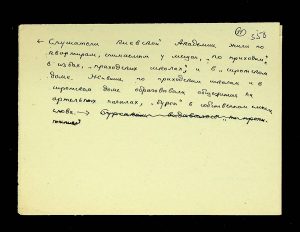 61 558
← Слушатели киевской Академии жили по
квартирам, снимаемым у мещан, „по приходам",
в избах, „приходских школах", и в „сиротском
доме. Жившие по приходским школам и в
сиротском доме образовали общежития на
артельных началах, „бурса" в собственном смысле
слова → Бурсакам выдавалось